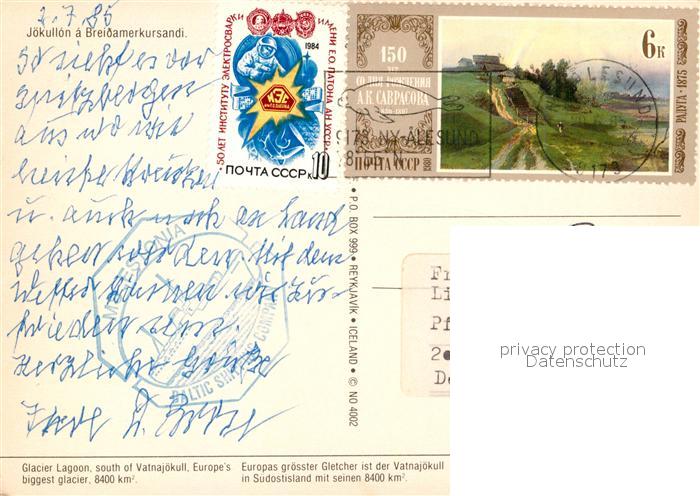 2.7.85
Jökullón á Breiðamerkursandi.
So sieht es vor
Spitzbergen
aus wo wir
heute
u. auch noch an Land
gehen werden. Mit dem
Wetter können wir zu-
frieden sein.
Herzliche Grüße
50 ЛЕТ ИНСТИТУТУ ЭЛЕКТРОСВАРКИ ИМЕНИ Е.О. ПАТОНА АН УССР
1984
ИЭС
ПОЧТА СССР к 10
150
ЛЕТ
СО ДНЯ РОЖДЕНИЯ
А.К. САВРАСОВА
1830-1897
ПОЧТА СССР 1980
6к
РАДУГА · 1875
N-9173 NY-ÅLESUND
ÅLESUND
9173
M/S ESTONIA
BALTIC SHIPPING COMPANY
P.O. BOX 999 • REYKJAVÍK • ICELAND • © NO 4002
Fr
Li
Pf
2
Da
privacy protection
Datenschutz
Glacier Lagoon, south of Vatnajökull, Europe's
biggest glacier, 8400 km².
Europas grösster Gletcher ist der Vatnajökull
in Südostisland mit seinen 8400 km².